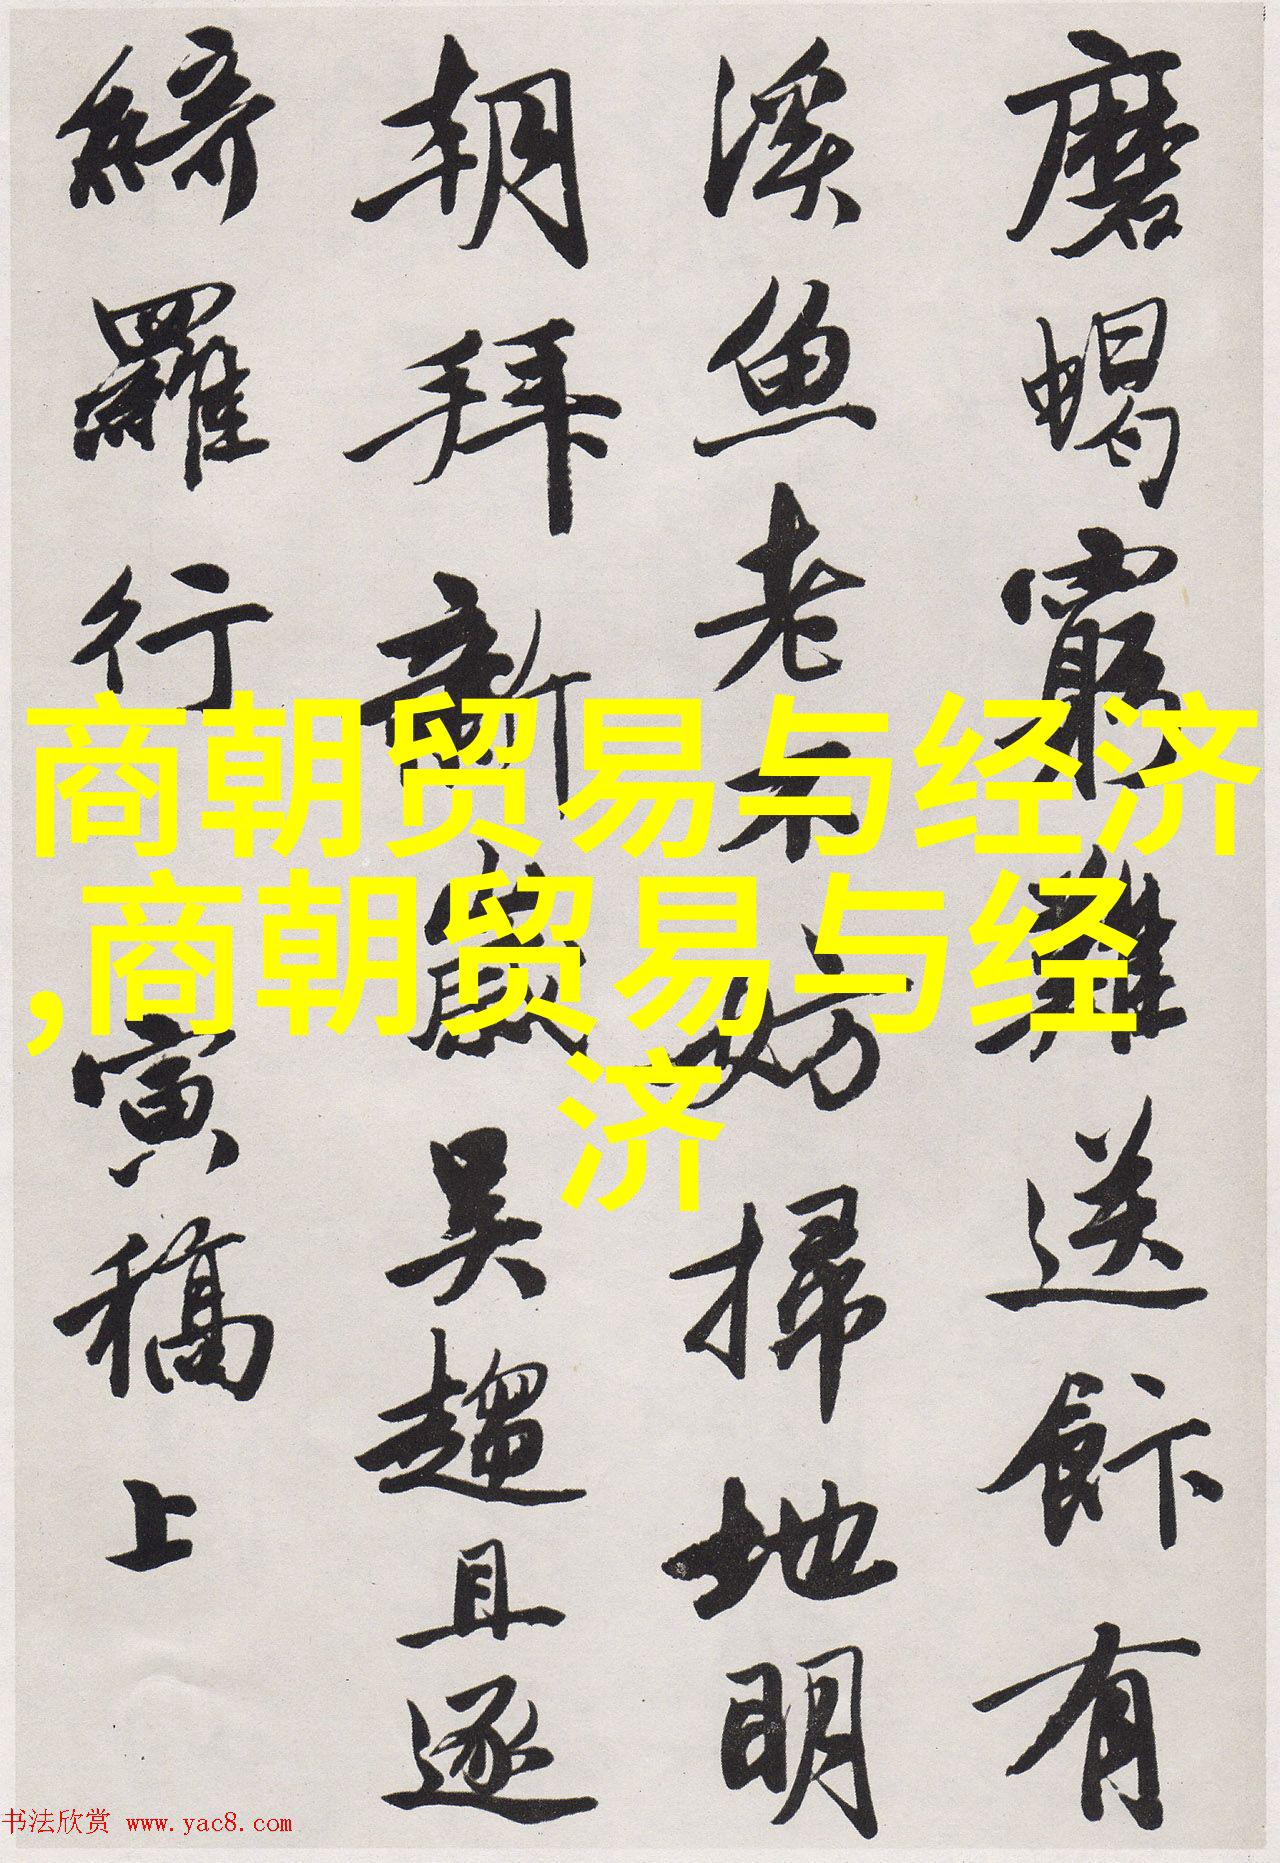 磨蝎窮難送餅有
溪魚老不妨掃地明
朝拜新歲吳趨且逐
綺羅行 寅稿上
商朝贸易与经济
,商朝贸易与经
济
书法欣赏 www.yac8.com